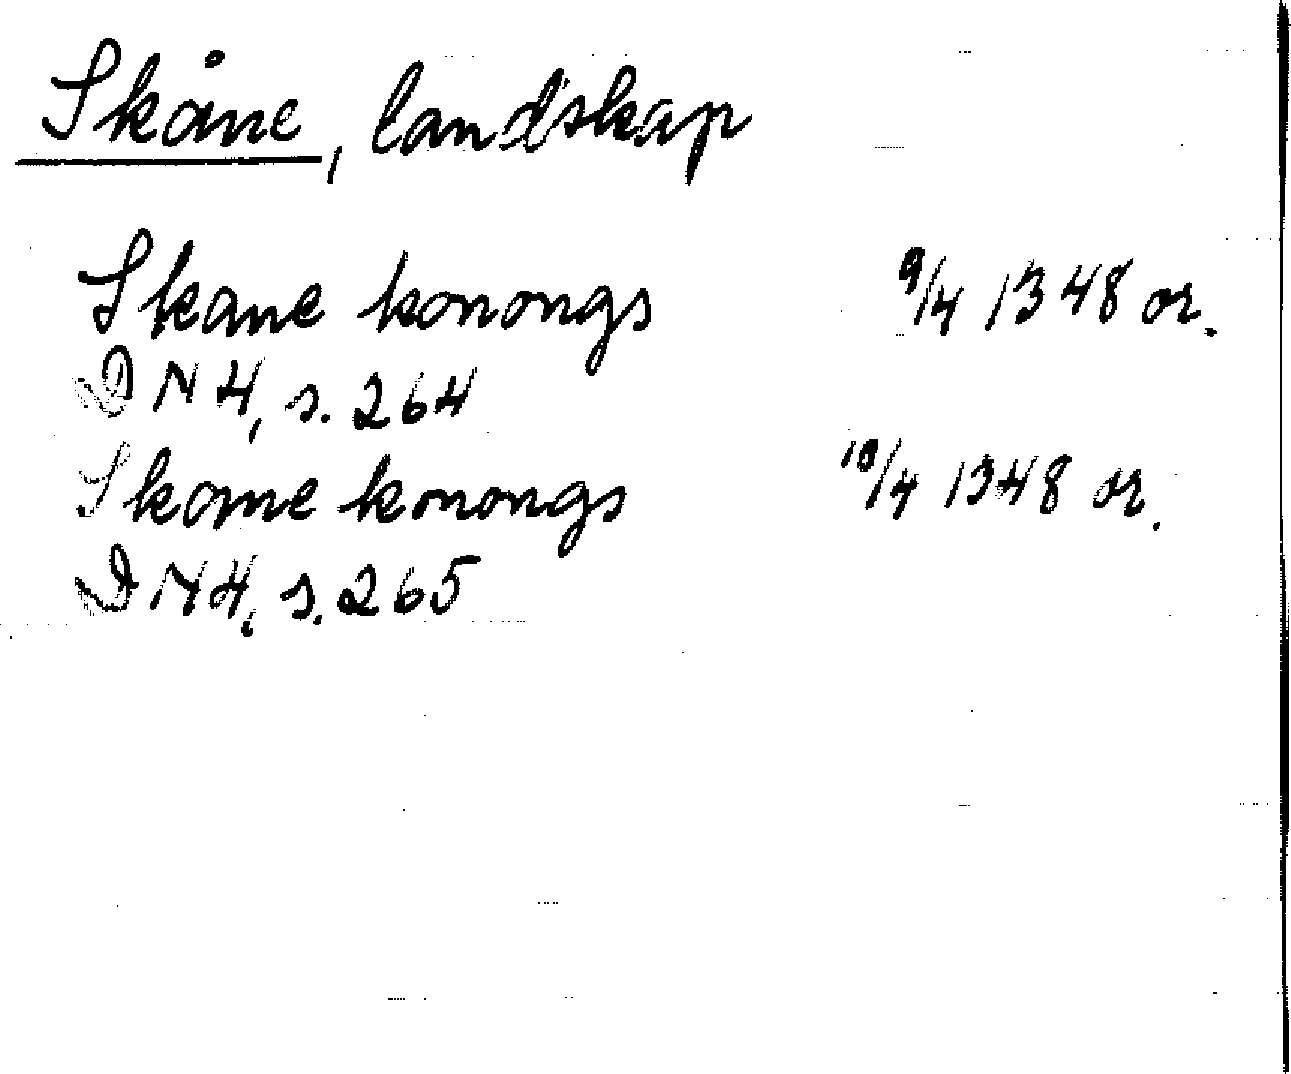 Skåne, landskap
Skane konongs 9/4 1348 or.
DN 4, s. 264
Skane konongs 10/4 1348 or.
DN 4, s. 265